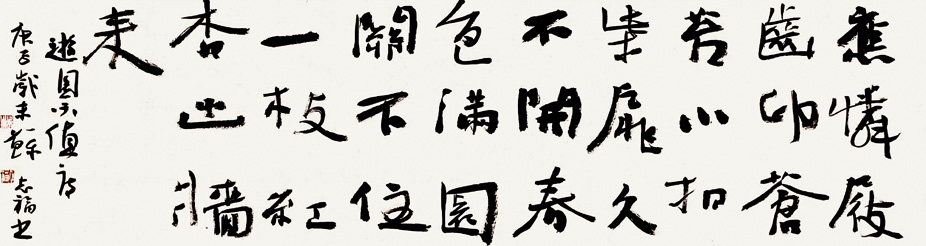 應憐屐
齒印蒼
苔小扣
柴扉久
不開春
色滿園
關不住
一枝紅
杏出牆
来
遊園不值詩
庚子歲末蘇志福书